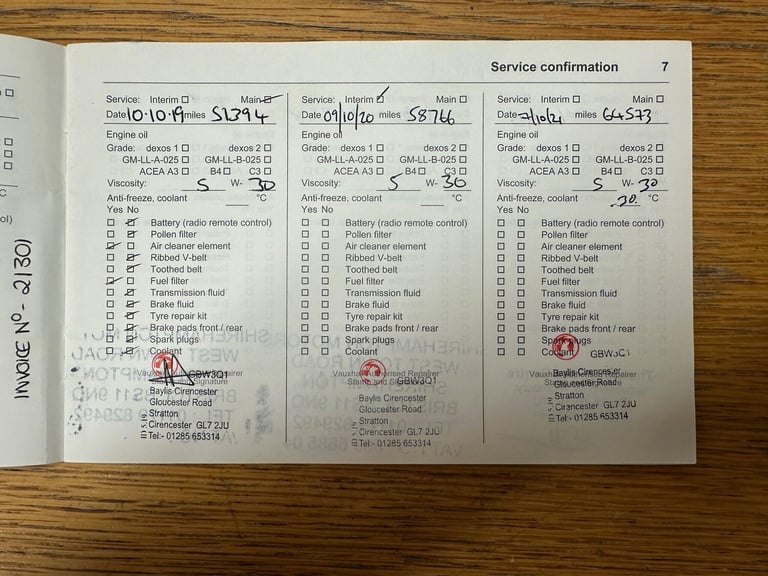 Service confirmation 7
Service: Interim Main
Date 10.10.19 miles 51394
Engine oil
Grade: dexos 1 dexos 2
GM-LL-A-025 GM-LL-B-025
ACEA A3 B4 C3
Viscosity: 5 W- 30
Anti-freeze, coolant °C
Yes No
Battery (radio remote control)
Pollen filter
Air cleaner element
Ribbed V-belt
Toothed belt
Fuel filter
Transmission fluid
Brake fluid
Tyre repair kit
Brake pads front / rear
Spark plugs
Coolant
GBW3Q1
Baylis Cirencester
Gloucester Road
Stratton
Cirencester GL7 2JU
Tel:- 01285 653314
Service: Interim Main
Date 09/10/20 miles 58766
Engine oil
Grade: dexos 1 dexos 2
GM-LL-A-025 GM-LL-B-025
ACEA A3 B4 C3
Viscosity: 5 W- 30
Anti-freeze, coolant °C
Yes No
Battery (radio remote control)
Pollen filter
Air cleaner element
Ribbed V-belt
Toothed belt
Fuel filter
Transmission fluid
Brake fluid
Tyre repair kit
Brake pads front / rear
Spark plugs
Coolant
Vauxhall Authorised Repairer
Stamp and GBW3Q1
Baylis Cirencester
Gloucester Road
Stratton
Cirencester GL7 2JU
Tel:- 01285 653314
Service: Interim Main
Date 7/10/21 miles 64573
Engine oil
Grade: dexos 1 dexos 2
GM-LL-A-025 GM-LL-B-025
ACEA A3 B4 C3
Viscosity: 5 W- 30
Anti-freeze, coolant 30 °C
Yes No
Battery (radio remote control)
Pollen filter
Air cleaner element
Ribbed V-belt
Toothed belt
Fuel filter
Transmission fluid
Brake fluid
Tyre repair kit
Brake pads front / rear
Spark plugs
Coolant
Baylis Cirencester
Gloucester Road
Stratton
Cirencester GL7 2JU
Tel:- 01285 653314
INVOICE No - 21301